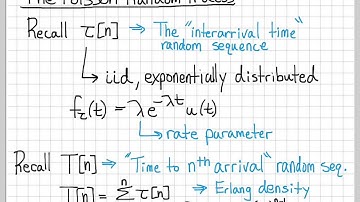 The Poisson Random Process
Recall τ[n] → The "interarrival time"
random sequence
↳ iid, exponentially distributed
f_τ(t) = λe^{-λt}u(t)
↳ rate parameter
Recall T[n] → "Time to nth arrival" random seq.
T[n] = Σ^n τ[n] → Erlang density